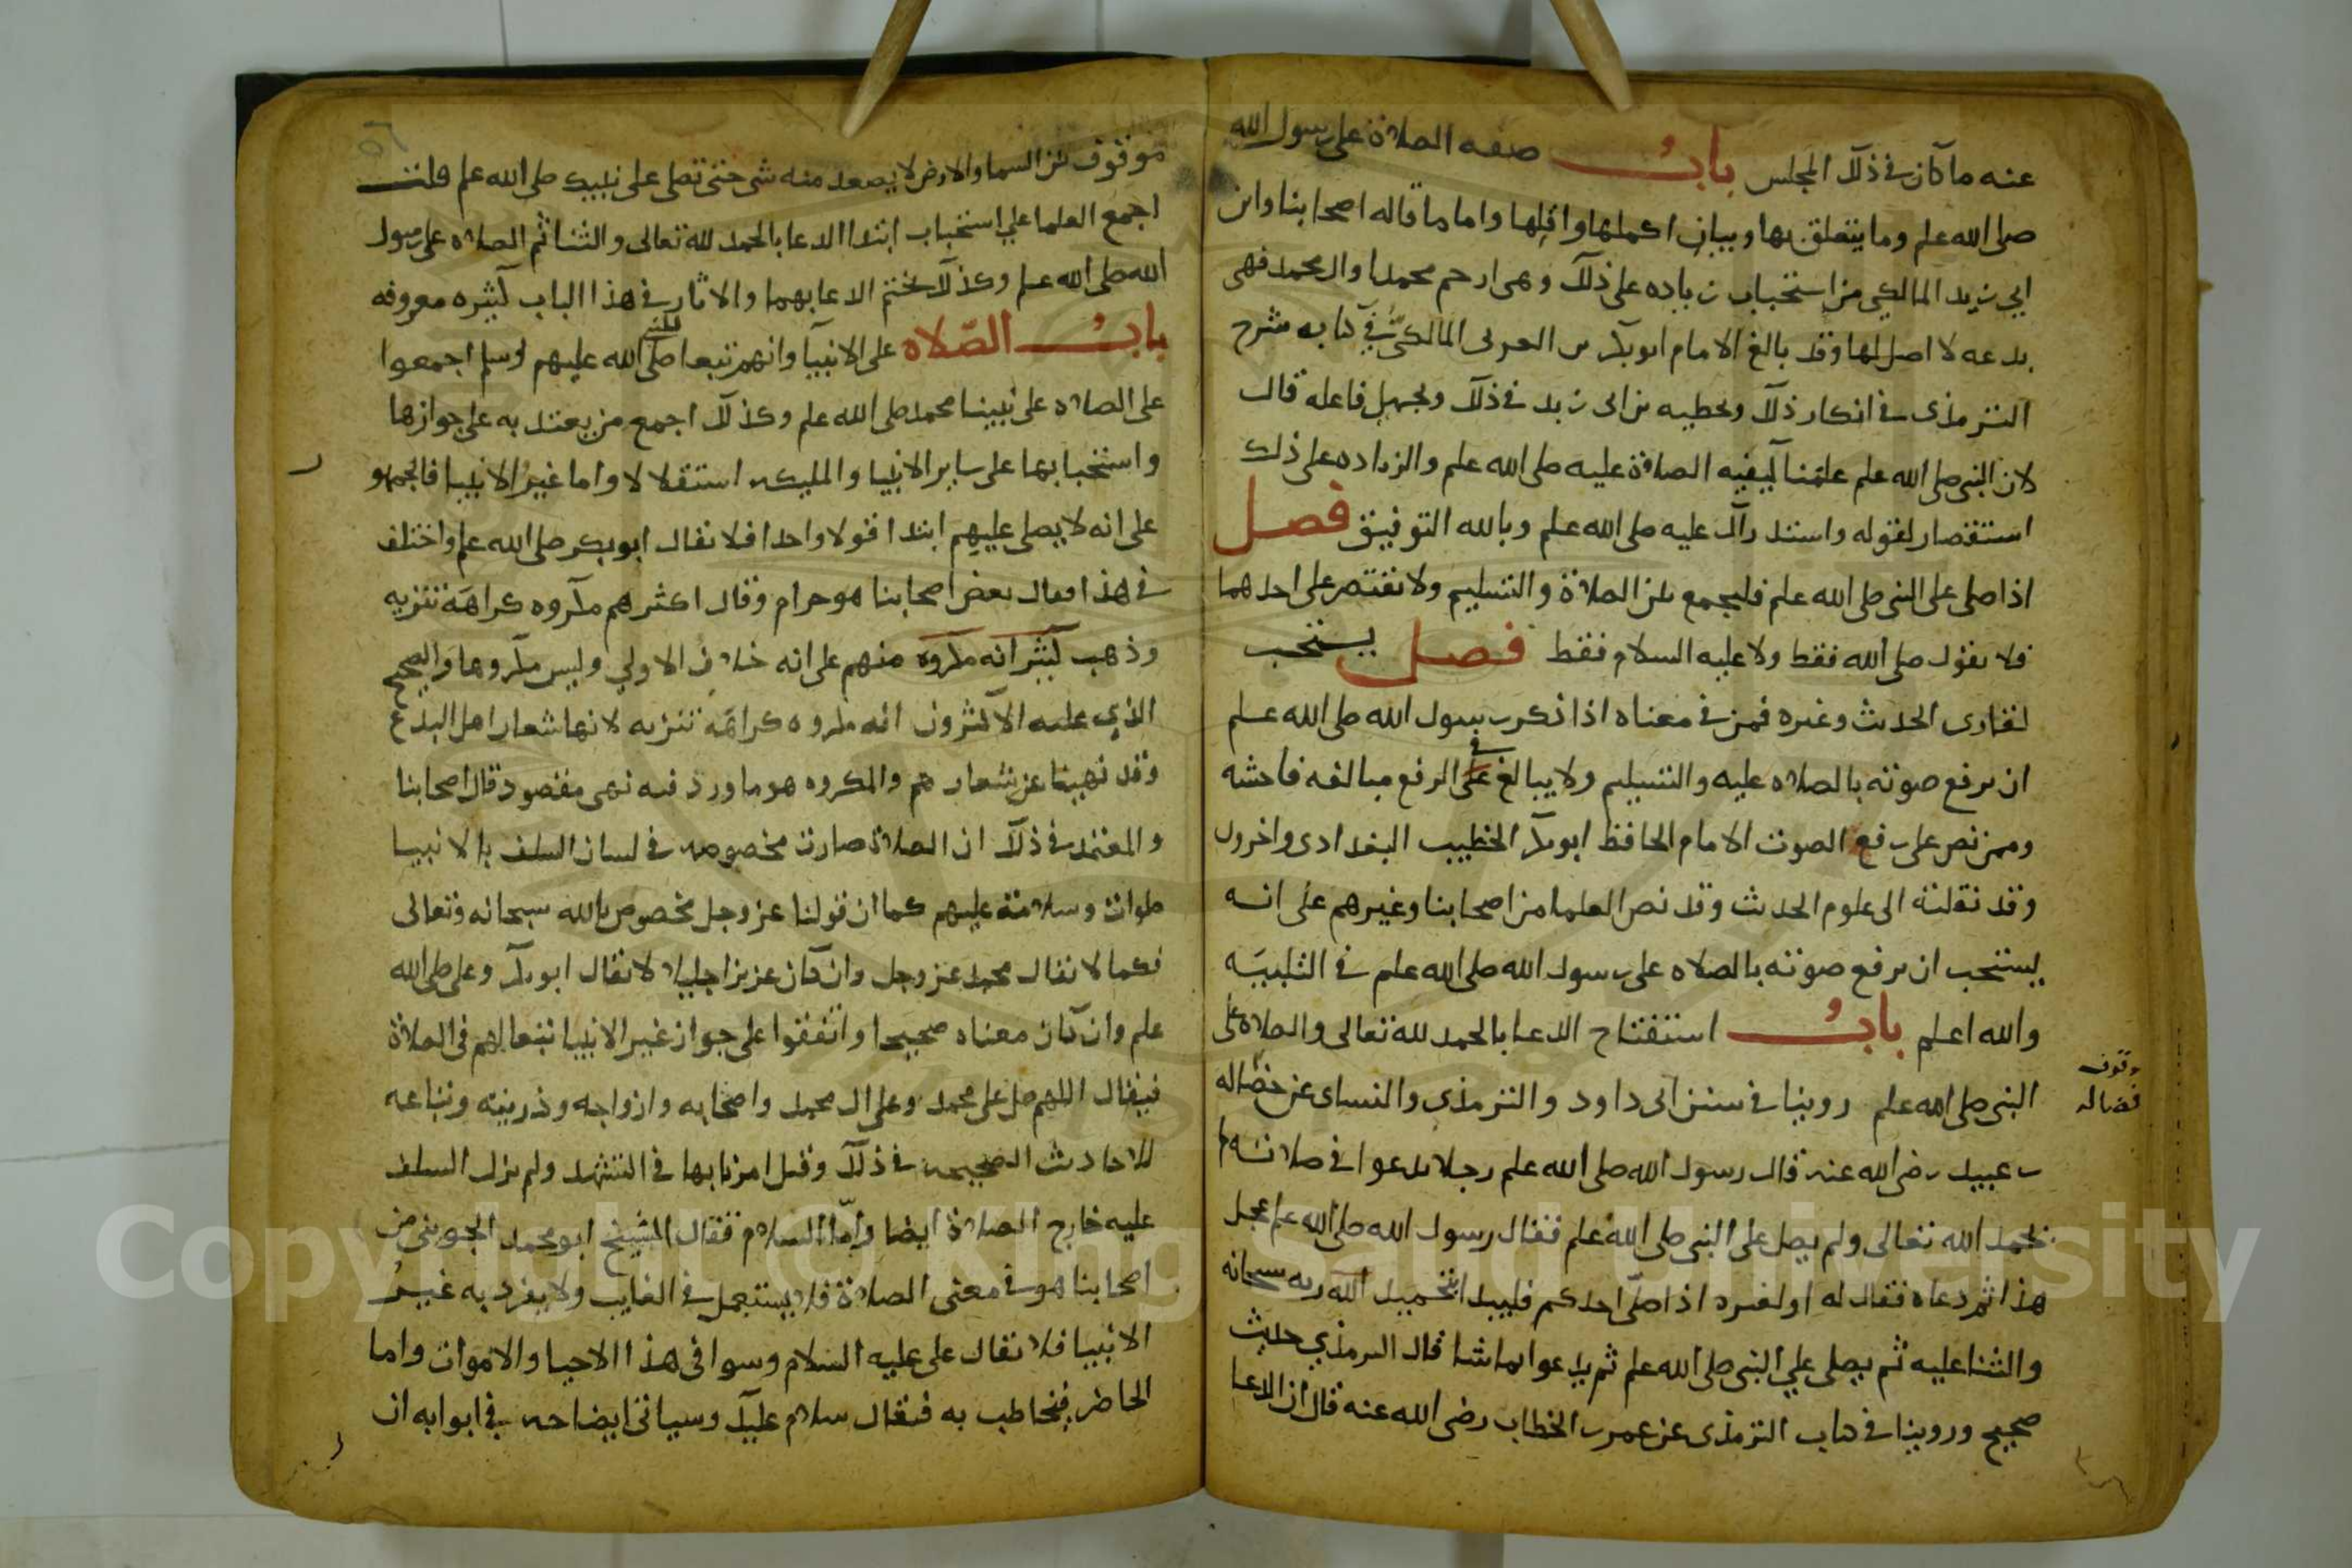 عنه ما كان في ذلك المجلس باب صفه الصلاة على رسول الله
صلى الله علم وما يتعلق بها وبيان اكملها واقلها واما ما قاله اصحابنا وابن
ابي زيد المالكي من استحباب زياده على ذلك وهي ارحم محمدا وال محمد فهى
بدعه لا اصل لها وقد بالغ الامام ابو بكر بن العربى المالكي في كتابه شرح
الترمذى في انكار ذلك وتخطيه بن ابى زيد في ذلك وتجهيل فاعله قال
لان النبى صلى الله علم علمنا كيفيه الصلاة عليه صلى الله علم والزياده على ذلك
استقصار لقوله واستدراك عليه صلى الله علم وبالله التوفيق فصل
اذا صلى على النبى صلى الله علم فليجمع بين الصلاة والتسليم ولا يقتصر على احدهما
فلا يقول صلى الله فقط ولا عليه السلام فقط فصل يستحب
لقارى الحديث وغيره فمن في معناه اذا ذكر رسول الله صلى الله علم
ان يرفع صوته بالصلاه عليه والتسليم ولا يبالغ على في الرفع مبالغه فاحشه
وممن نص على رفع الصوت الامام الحافظ ابو بكر الخطيب البغدادى واخرون
وقد نقلته الى علوم الحديث وقد نص العلما من اصحابنا وغيرهم على انه
يستحب ان يرفع صوته بالصلاه على رسول الله صلى الله علم في التلبيه
والله اعلم باب استفتاح الدعا بالحمد لله تعالى والصلاة على
النبى صلى الله علم روينا في سنن ابى داود والترمذي والنساى عن فضاله
بن عبيد رضى الله عنه قال رسول الله صلى الله علم رجلا يدعوا في صلاته لم
يحمد الله تعالى ولم يصل على النبى صلى الله علم فقال رسول الله صلى الله علم عجل
هذا ثم دعاه فقال له او لغيره اذا صلى احدكم فليبدا بتحميد الله ربه سبحانه
والثنا عليه ثم يصلى على النبى صلى الله علم ثم يدعوا بما شا قال الترمذي حديث
صحيح وروينا في كتاب الترمذى عن عمر بن الخطاب رضى الله عنه قال ان الدعا
فضاله
موقوف بين السما والارض لا يصعد منه شى حتى تصلى على نبيك صلى الله علم قلت
اجمع العلما على استحباب ابتدا الدعا بالحمد لله تعالى والثنا ثم الصلاه على رسول
الله صلى الله علم وكذلك يختم الدعا بهما والاثار في هذا الباب كثيره معروفه
باب الصلاه على الانبيآ والهم تبعا لهم صلى الله عليهم وسلم اجمعوا
على الصلاه على نبينا محمد صلى الله علم وكذلك اجمع من يعتد به على جوازها
واستحبابها على ساير الانبيا والمليكه استقلالا واما غير الانبيا فالجمهو
على انه لا يصلى عليهم ابتدا قولا واحدا فلا يقال ابو بكر صلى الله علم واختلف
في هذا فقال بعض اصحابنا هو حرام وقال اكثرهم مكروه كراهة تنزيه
وذهب كثير انه مكروه منهم على انه خلاف الاولي وليس مكروها والصحيح
الذي عليه الاكثرون انه مكروه كراهة تنزيه لانها شعار اهل البدع
وقد نهينا عن شعارهم والمكروه هو ما ورد فيه نهى مقصود قال اصحابنا
والمعتمد في ذلك ان الصلاة صارت مخصوصه في لسان السلف بالانبيا
صلوات وسلامة عليهم كما ان قولنا عز وجل مخصوص بالله سبحانه وتعالى
فكما لا يقال محمد عز وجل وان كان عزيزا جليلا لا يقال ابو بكر وعلى صلى الله
علم وان كان معناه صحيحا واتفقوا على جواز غير الانبيا تبعا لهم فى الصلاة
فيقال اللهم صل على محمد وعلى ال محمد واصحابه وازواجه وذريته وتباعه
للاحاديث الصحيحه في ذلك وقبل امرنا بها في التشهد ولم يزل السلف
عليه خارج الصلاة ايضا واما السلام فقال الشيخ ابو محمد الجوينى من
اصحابنا هو في معنى الصلاة فلا يستعمل في الغايب ولا يفرد به غير
الانبيا فلا يقال على عليه السلام وسوا فى هذا الاحيا والاموات واما
الحاضر فيخاطب به فيقال سلام عليك وسياتى ايضاحه في ابوابه ان
Copyright © King Saud University